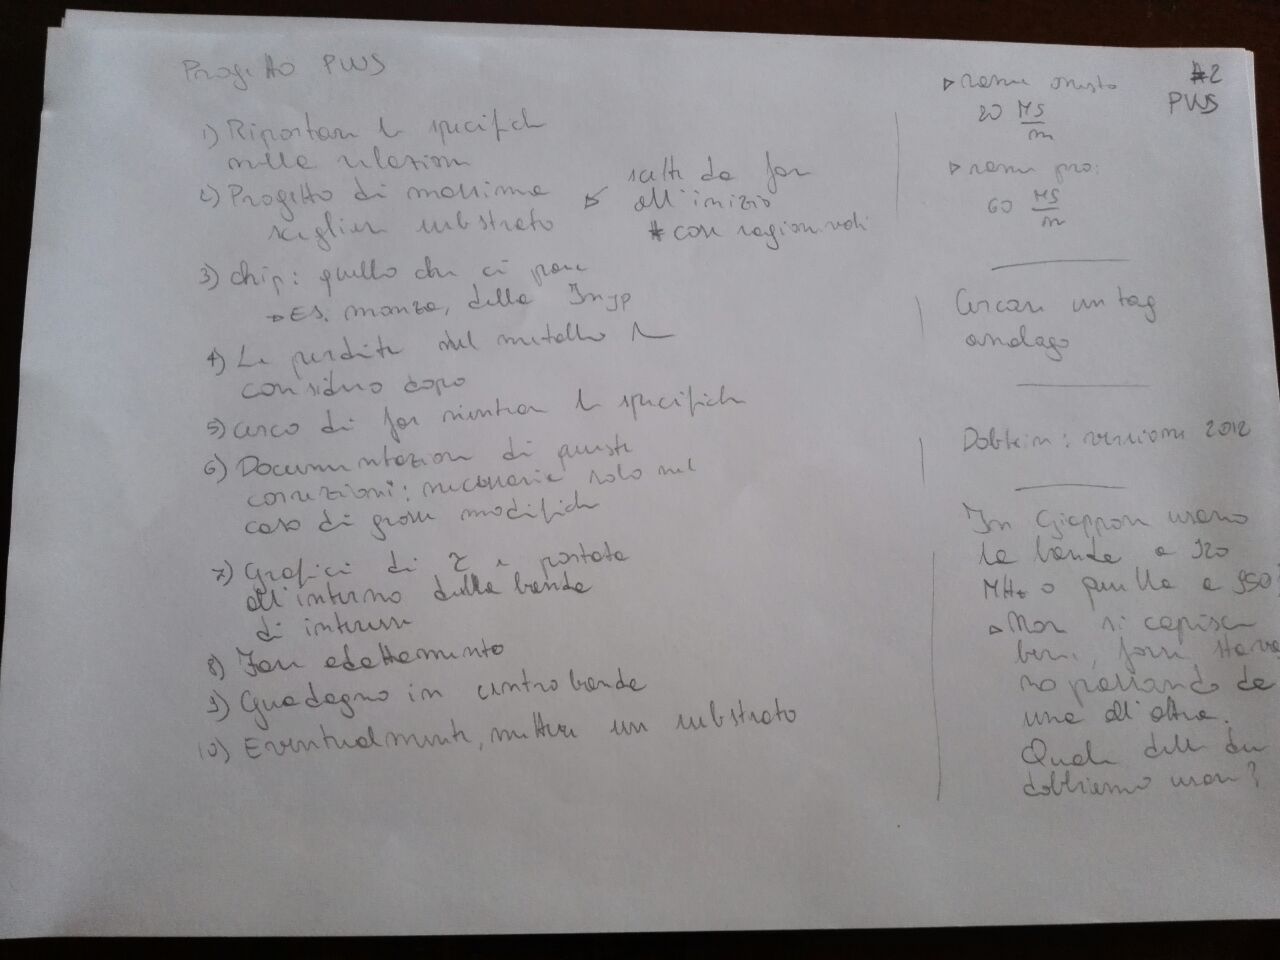 Progetto PWS
1) Riportare le specifiche
nella relazione
2) Progetto di massima
scegliere substrato
scelte da fare
all'inizio
* cose ragionevoli
3) chip: quello che ci pare
→ Es. monza, della Impj
4) Le perdite nel metallo le
considero dopo
5) cerco di far rientrare le specifiche
6) Documentazione di queste
correzioni: necessarie solo nel
caso di grosse modifiche
7) Grafici di Z e portata
all'interno della banda
di interesse
8) Fare adattamento
9) Guadagno in centro banda
10) Eventualmente, mettere un substrato
#2
PWS
▹ rame onesto
20 MS
m
▹ rame pro:
60 MS
m
Cercare un tag
analogo
Dobkin: versione 2012
In Giappone usano
la banda a 920
MHz o quella a 950?
▹ Non si capisce
bene, forse stanno
passando da
una all'altra.
Quale delle due
dobbiamo usare?